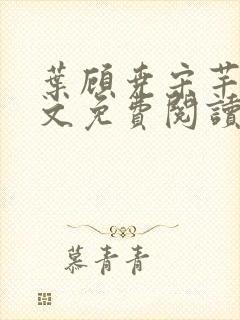 葉顧堯宋芊
文免費閱讀
慕青青